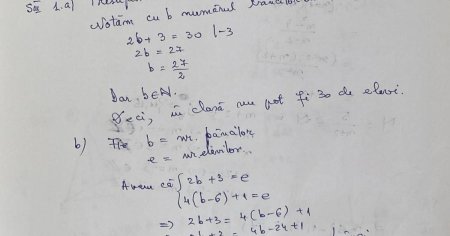 1.a)
Notăm cu b numărul băncilor
2b + 3 = 30 |-3
2b = 27
b = 27/2
Dar b∈ℕ.
Deci, în clasă nu pot fi 30 de elevi.
b) Fie b = nr. băncilor
e = nr. elevilor.
Avem că { 2b + 3 = e
4(b-6) + 1 = e
=> 2b + 3 = 4(b-6) + 1
4b - 24 + 1